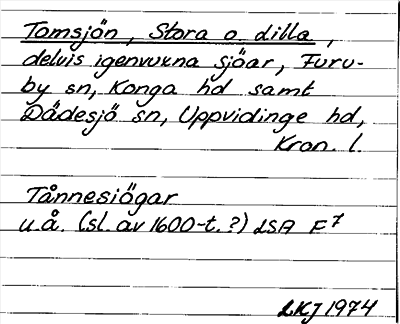 Tomsjön, Stora o. Lilla,
delvis igenvuxna sjöar, Furu-
by sn, Konga hd samt
Dädesjö sn, Uppvidinge hd,
Kron. l.
Tånnesiögar
u.å. (sl. av 1600-t.?) LSA F7
LKJ 1974